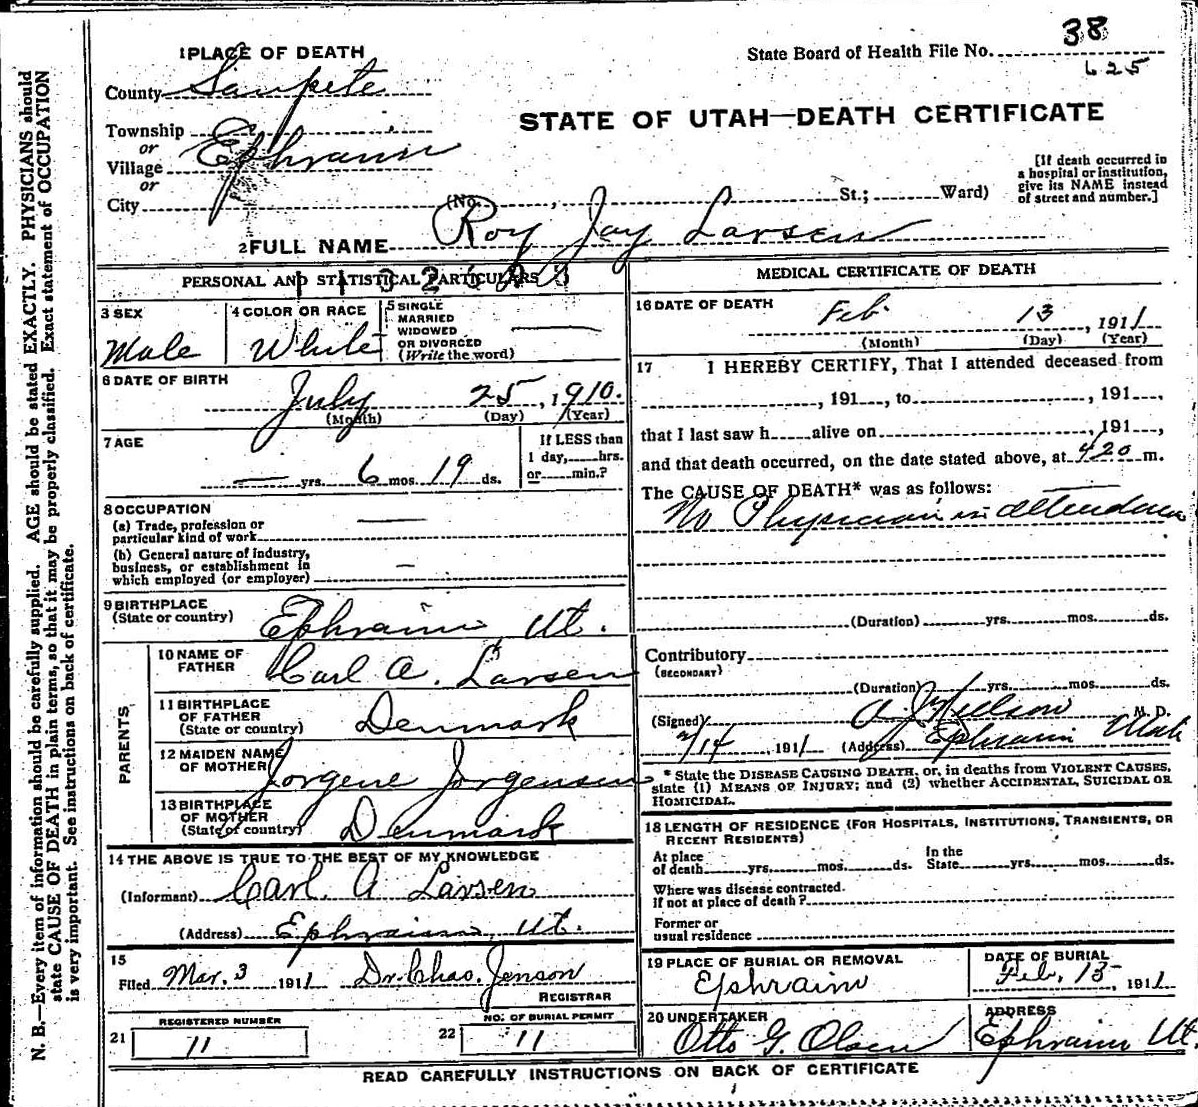 38
State Board of Health File No.
625
1 PLACE OF DEATH
County Sanpete
STATE OF UTAH—DEATH CERTIFICATE
Township
or
Village Ephraim
or
City
(No. , St.; Ward)
[If death occurred in
a hospital or institution,
give its NAME instead
of street and number.]
2 FULL NAME Roy Jay Larsen
PERSONAL AND STATISTICAL PARTICULARS
3 SEX
Male
4 COLOR OR RACE
White
5 SINGLE
MARRIED
WIDOWED
OR DIVORCED
(Write the word)
6 DATE OF BIRTH
July 25, 1910.
(Month) (Day) (Year)
7 AGE
— yrs. 6 mos. 19 ds.
If LESS than
1 day, hrs.
or min.?
8 OCCUPATION
(a) Trade, profession or
particular kind of work
(b) General nature of industry,
business, or establishment in
which employed (or employer)
9 BIRTHPLACE
(State or country) Ephraim, Ut.
PARENTS
10 NAME OF
FATHER Carl A. Larsen
11 BIRTHPLACE
OF FATHER
(State or country) Denmark
12 MAIDEN NAME
OF MOTHER Jorgene Jorgensen
13 BIRTHPLACE
OF MOTHER
(State or country) Denmark
14 THE ABOVE IS TRUE TO THE BEST OF MY KNOWLEDGE
(Informant) Carl. A Larsen
(Address) Ephraim, Ut.
15
Filed Mar. 3 1911 Dr. Chas. Jenson
REGISTRAR
21 REGISTERED NUMBER
11
22 NO. OF BURIAL PERMIT
11
MEDICAL CERTIFICATE OF DEATH
16 DATE OF DEATH
Feb. 13, 1911
(Month) (Day) (Year)
17 I HEREBY CERTIFY, That I attended deceased from
, 191 , to , 191 ,
that I last saw h alive on , 191 ,
and that death occurred, on the date stated above, at 420 m.
The CAUSE OF DEATH* was as follows:
No Physician in attendance
(Duration) yrs. mos. ds.
Contributory
(SECONDARY)
(Duration) yrs. mos. ds.
(Signed) A. J. Nielson M. D.
2/14, 1911 (Address) Ephraim Utah
* State the DISEASE CAUSING DEATH, or, in deaths from VIOLENT CAUSES,
state (1) MEANS OF INJURY; and (2) whether ACCIDENTAL, SUICIDAL OR
HOMICIDAL.
18 LENGTH OF RESIDENCE (FOR HOSPITALS, INSTITUTIONS, TRANSIENTS, OR
RECENT RESIDENTS)
At place
of death yrs. mos. ds.
In the
State yrs. mos. ds.
Where was disease contracted.
if not at place of death?
Former or
usual residence
19 PLACE OF BURIAL OR REMOVAL
Ephraim
DATE OF BURIAL
Feb. 15, 1911
20 UNDERTAKER
Otto G. Olsen
ADDRESS
Ephraim Ut.
READ CAREFULLY INSTRUCTIONS ON BACK OF CERTIFICATE
N. B.—Every item of information should be carefully supplied. AGE should be stated EXACTLY. PHYSICIANS should
state CAUSE OF DEATH in plain terms, so that it may be properly classified. Exact statement of OCCUPATION
is very important. See instructions on back of certificate.